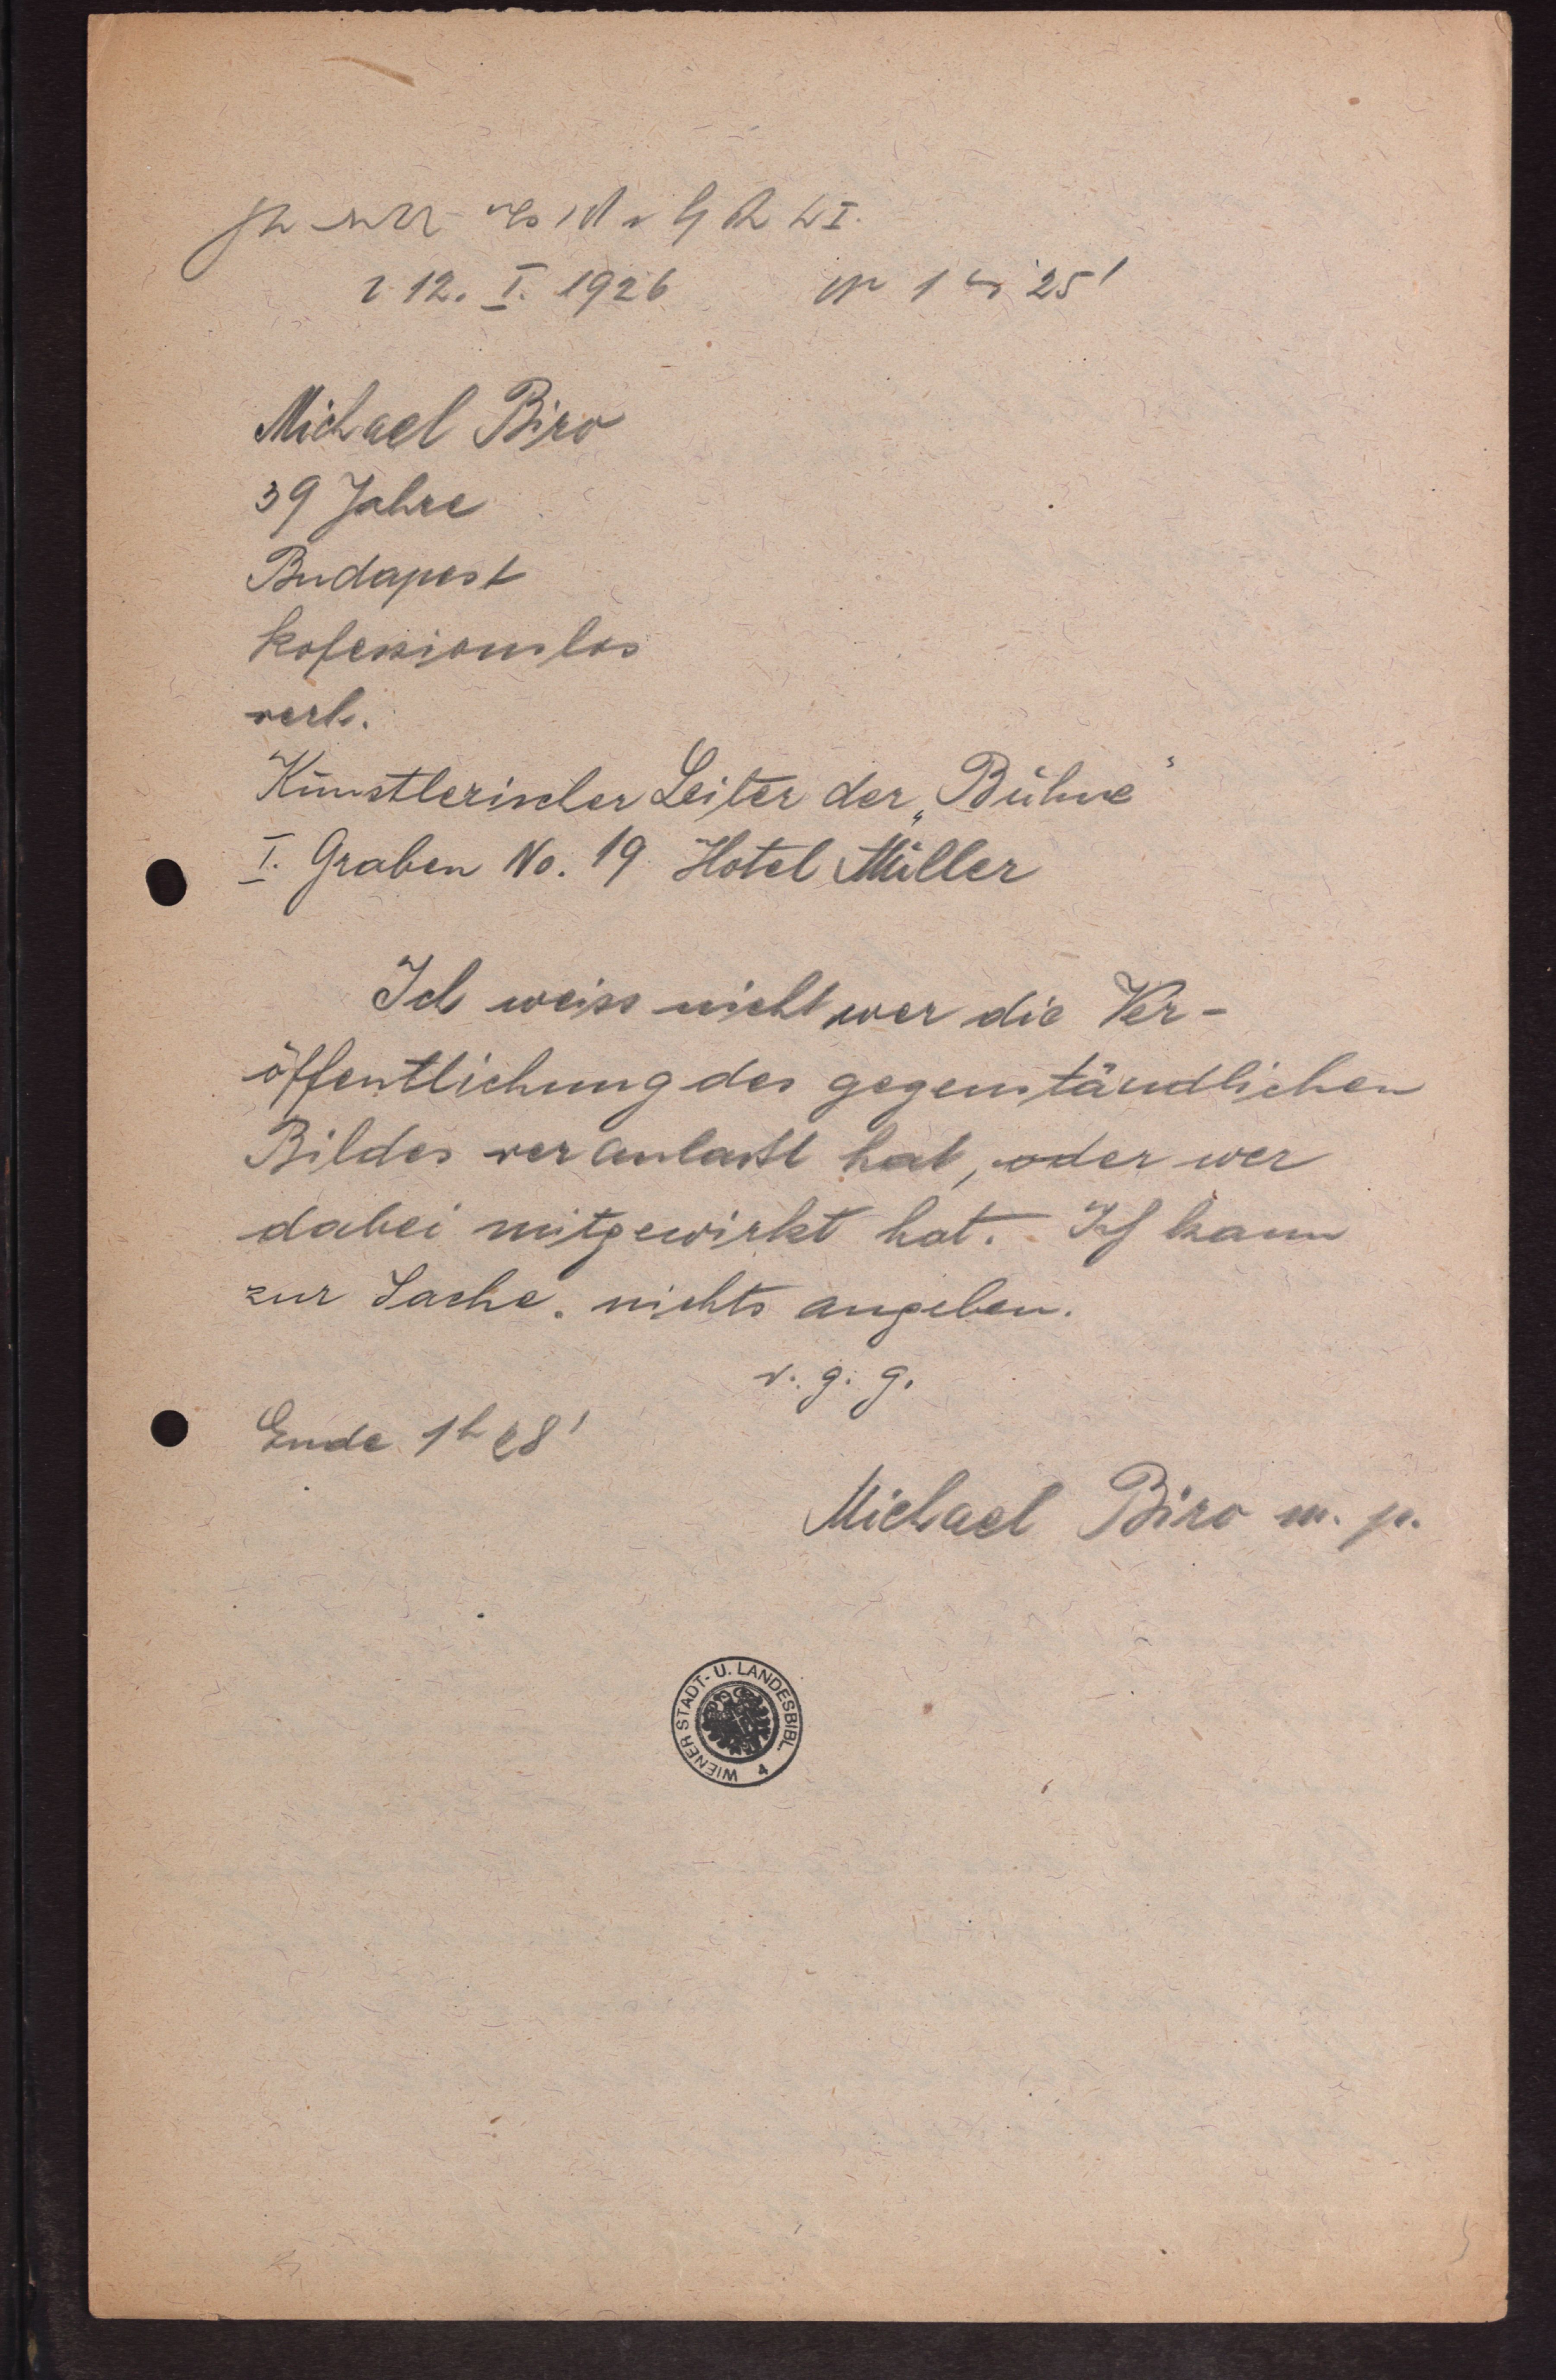 12. I. 1926 1 25'
Michael Biro
39 Jahre
Budapest
kofessionslos
verh.
Künstlerischer Leiter der „Bühne"
I. Graben No. 19 Hotel Müller
Ich weiss nicht wer die Ver-
öffentlichung des gegenständlichen
Bildes veranlaßt hat, oder wer
dabei mitgewirkt hat. Ich kann
zur Sache. nichts angeben.
v. g. g.
Ende 1h 28'
Michael Biro m. p.
WIENER STADT- U. LANDESBIBL. 4